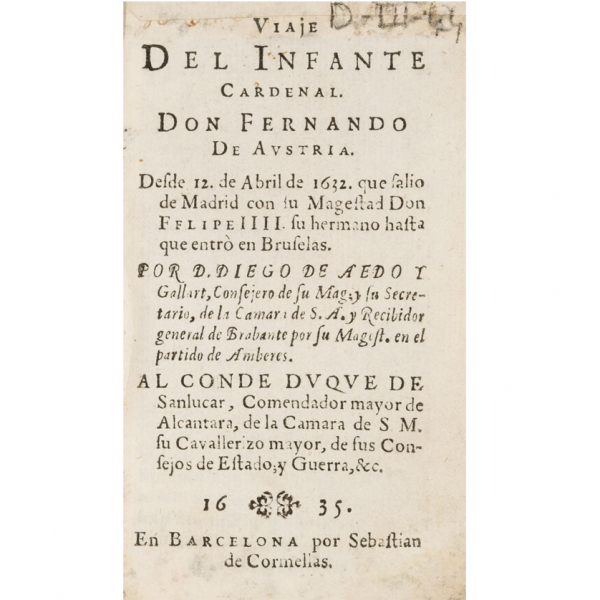 VIAJE
DEL INFANTE
CARDENAL.
DON FERNANDO
DE AVSTRIA.
Desde 12. de Abril de 1632. que ſalio
de Madrid con ſu Mageſtad Don
FFLIPE IIII. ſu hermano haſta
que entrò en Bruſelas.
POR D. DIEGO DE AEDO Y
Gallart, Conſejero de ſu Mag. y ſu Secre-
tario, de la Camara de S. A. y Recibidor
general de Brabante por ſu Mageſt. en el
partido de Amberes.
AL CONDE DVQVE DE
Sanlucar, Comendador mayor de
Alcantara, de la Camara de S M.
ſu Cavallerizo mayor, de ſus Con-
ſejos de Eſtado, y Guerra, &c.
16 35.
En BARCELONA por Sebaſtian
de Cormellas.